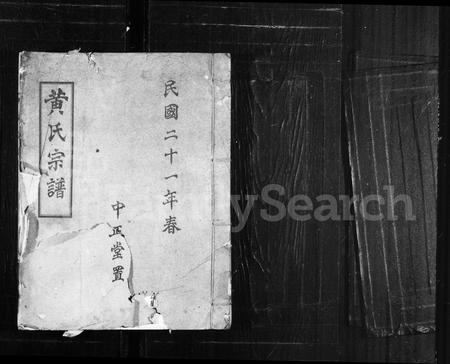 民國二十一年春
中正堂置
黄氏宗譜
FamilySearch